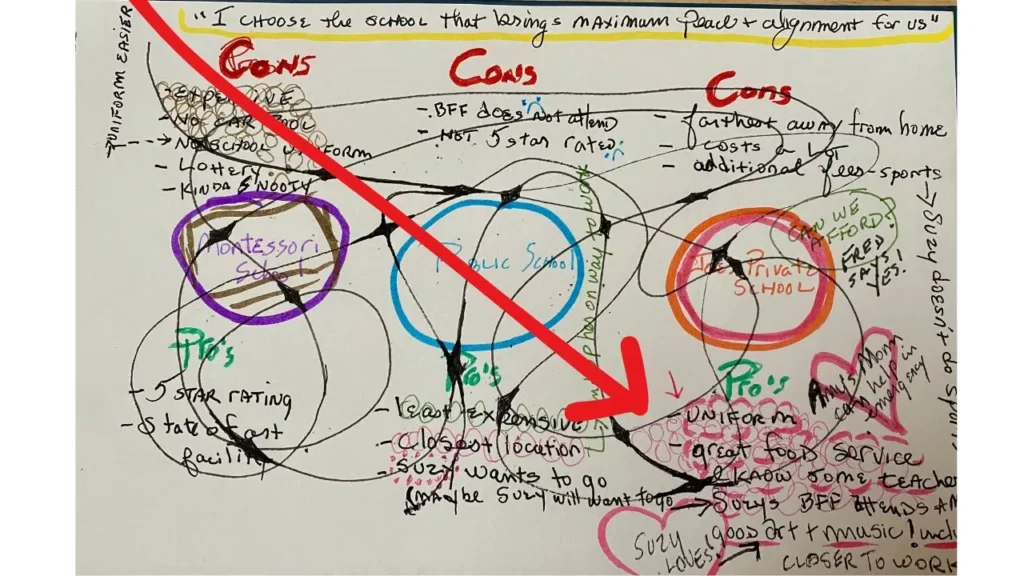 "I CHOOSE the SCHOOL that brings MAXIMUM peace + alignment for us"
UNIFORM EASIER
CONS
- EXPENSIVE
- NO CAR POOL
- NO SCHOOL UNIFORM
- LOTTERY
- KINDA SNOOTY
Montessori
School
Pro's
- 5 STAR RATING
- State of art
facility
Con's
- BFF does not attend
- NOT 5 star rated
PUBLIC SCHOOL
Pro's
- least expensive
- Closest location
- Suzy wants to go
(MAYBE Suzy will want to go
Cons
- farthest away from home
- costs a LOT
- additional fees-sports
Suzy doesn't do sports
CAN WE
AFFORD?
FRED
SAYS
YES!
Private
SCHOOL
Pro's
- UNIFORM
- great food service
I KNOW SOME teache
Suzys BFF attends
good art + music! incl
CLOSER TO WORK
Mom
can help in
emergency
SUZY
LOVES!